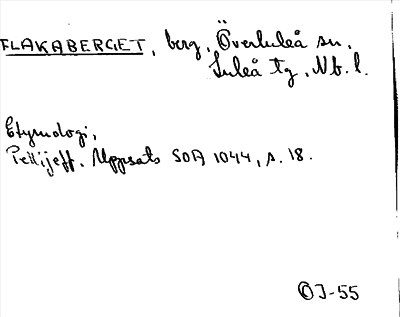 FLAKABERGET, berg, Överluleå sn,
Luleå tg, Nb. l.
Etymologi,
Pettijeff. Uppsats SOA 1044, s. 18.
OJ-55